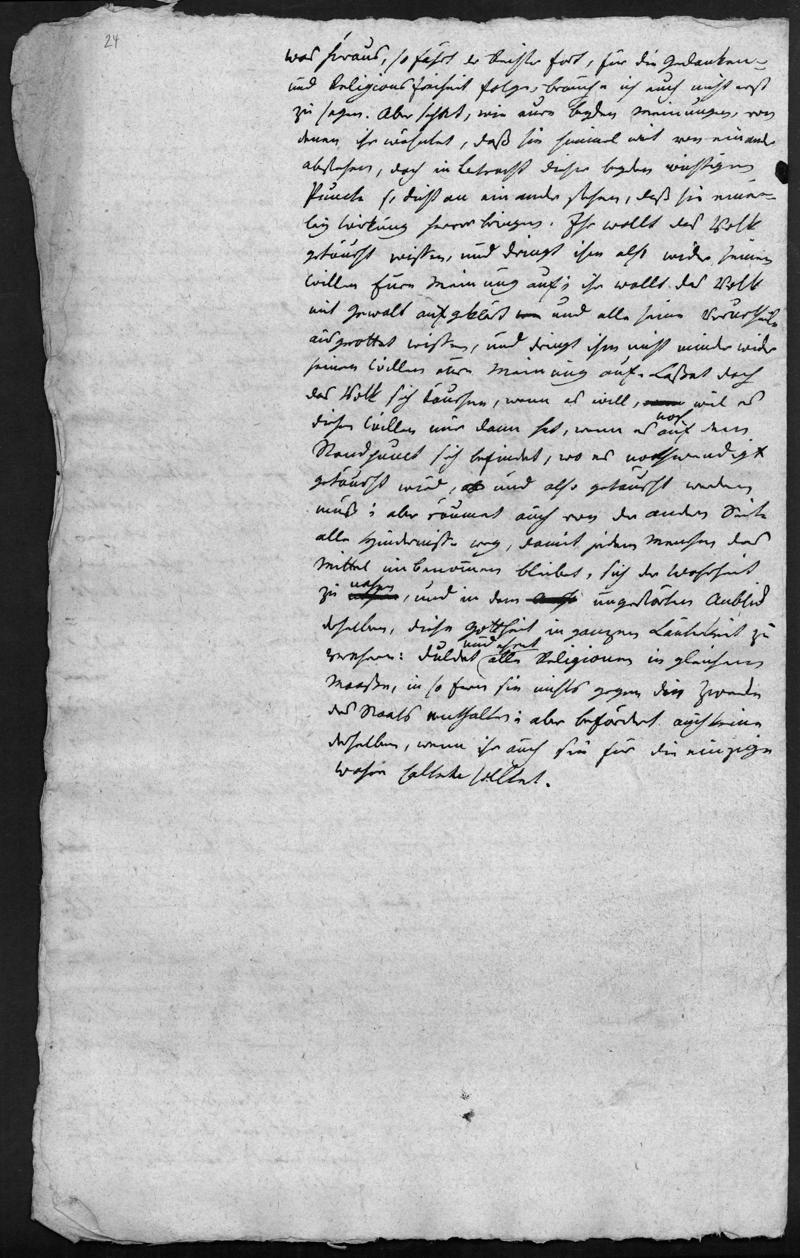 24
was hieraus, so fährt der Meister fort, für die Gedanken-
und Religionsfreiheit folge, brauche ich euch nicht erst
zu sagen. Aber sehet, wie eure beyden Meinungen, von
denen ihr wähntet, daß sie himmel weit von einander
abstehen, doch in Betracht dieser beyden wichtigen
Puncte so dicht an einander stehen, daß sie einer-
ley Wirkung hervorbringen. Ihr wollt das Volk
getäuscht wissen, und dringt ihm also wider seinen
Willen Eure Meinung auf; ihr wollt das Volk
mit Gewalt aufgeklärt und alle seine Vorurtheile
ausgerottet wissen, und dringt ihm nicht minder wider
seinen Willen eure Meinung auf. Lasset doch
das Volk sich täuschen, wenn es will, weil es
diesen Willen nur dann hat, wenn es noch auf dem
Standpunct sich befindet, wo es nothwendig
getäuscht wird, und also getäuscht werden
muß; aber räumet auch von der andern Seite
alle Hindernisse weg, damit jedem Menschen das
Mittel unbenommen bleibet, sich der Wahrheit
zu nahen, und in dem ungestörten Anblick
derselben, diese Gottheit in ganzer Lauterkeit zu
verehren: duldet und ehret alle Religionen in gleichem
Maaße, in so fern sie nichts gegen den Zweck
des Staats enthalten; aber befördert auch keine
derselben, wenn ihr auch sie für die einzige
wahre halten solltet.